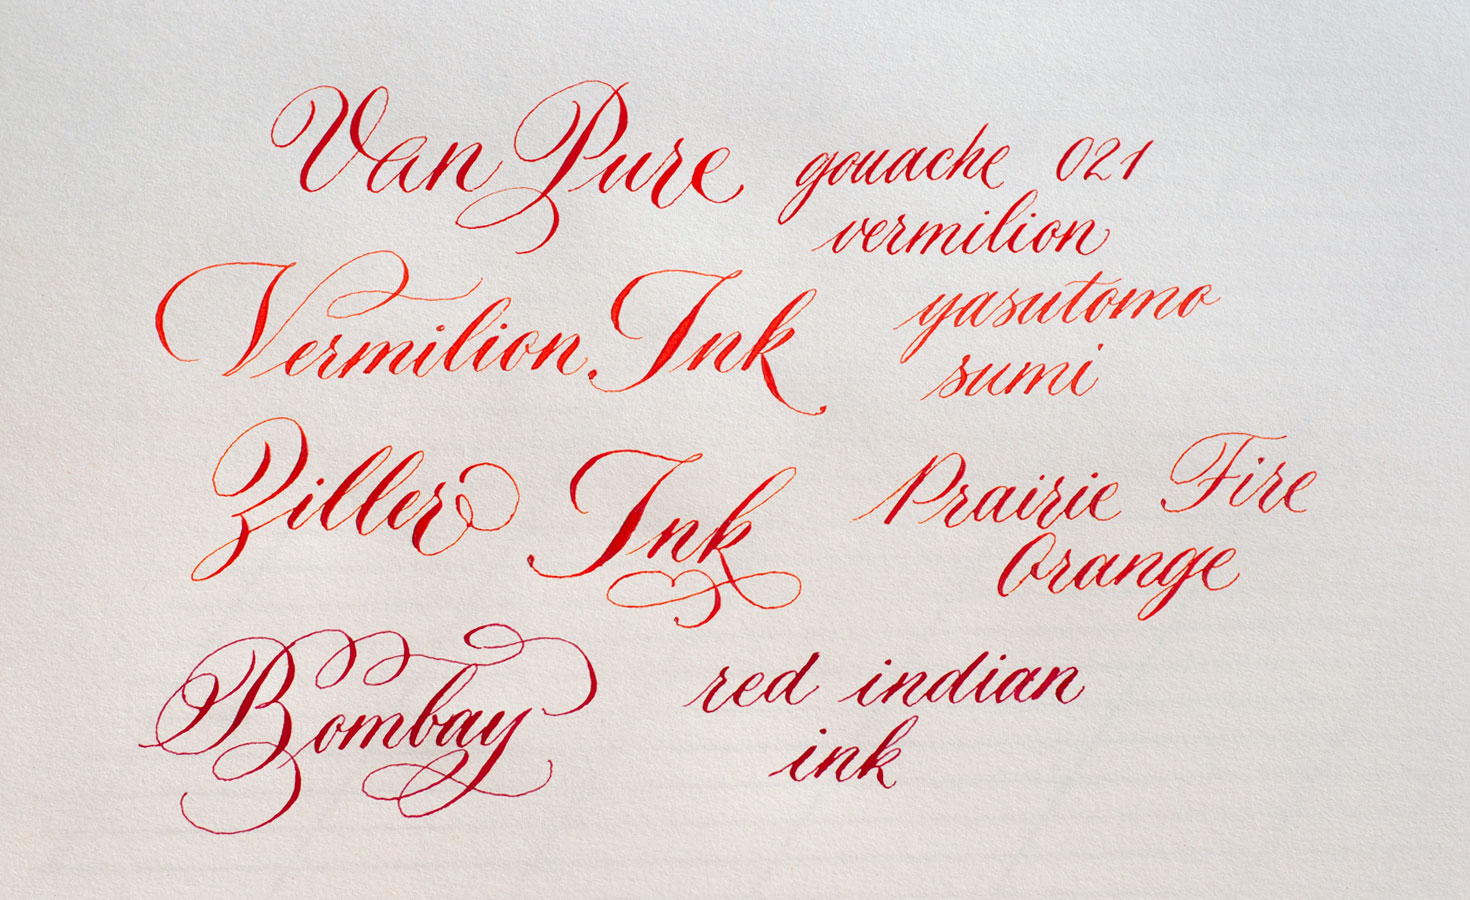 Van Pure gouache 021
vermilion
Vermilion Ink yasutomo
sumi
Ziller Ink Prairie Fire
Orange
Bombay red indian
ink